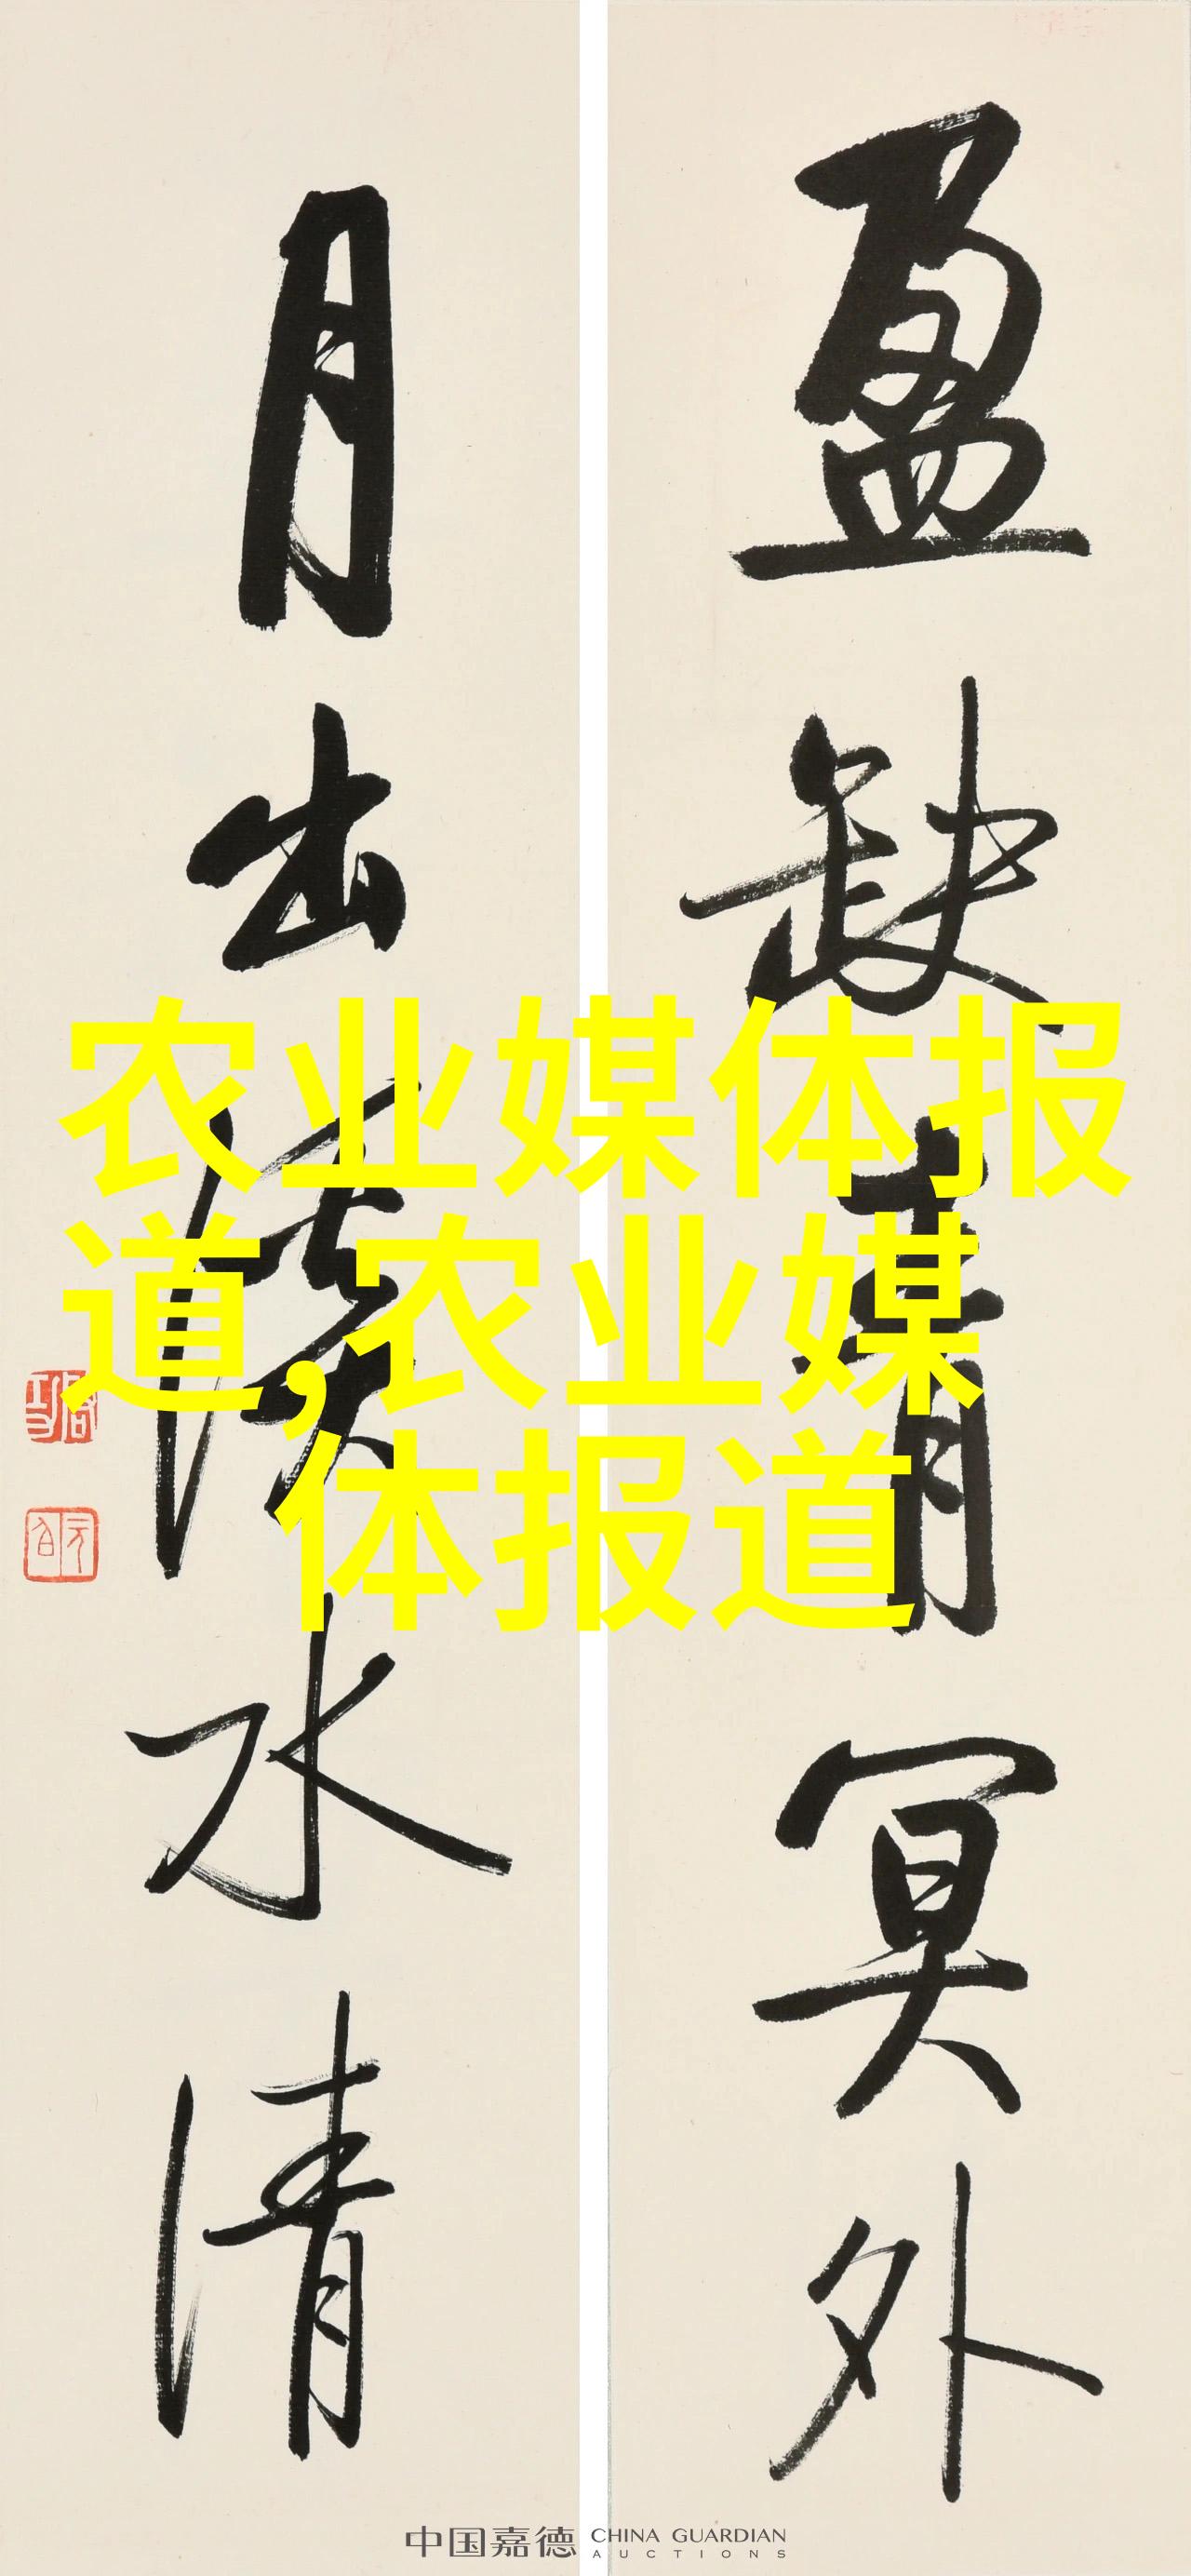 盈缺青冥外
月出
水清
农业媒体报
道,农业媒
体报道
中国嘉德 CHINA GUARDIAN
AUCTIONS